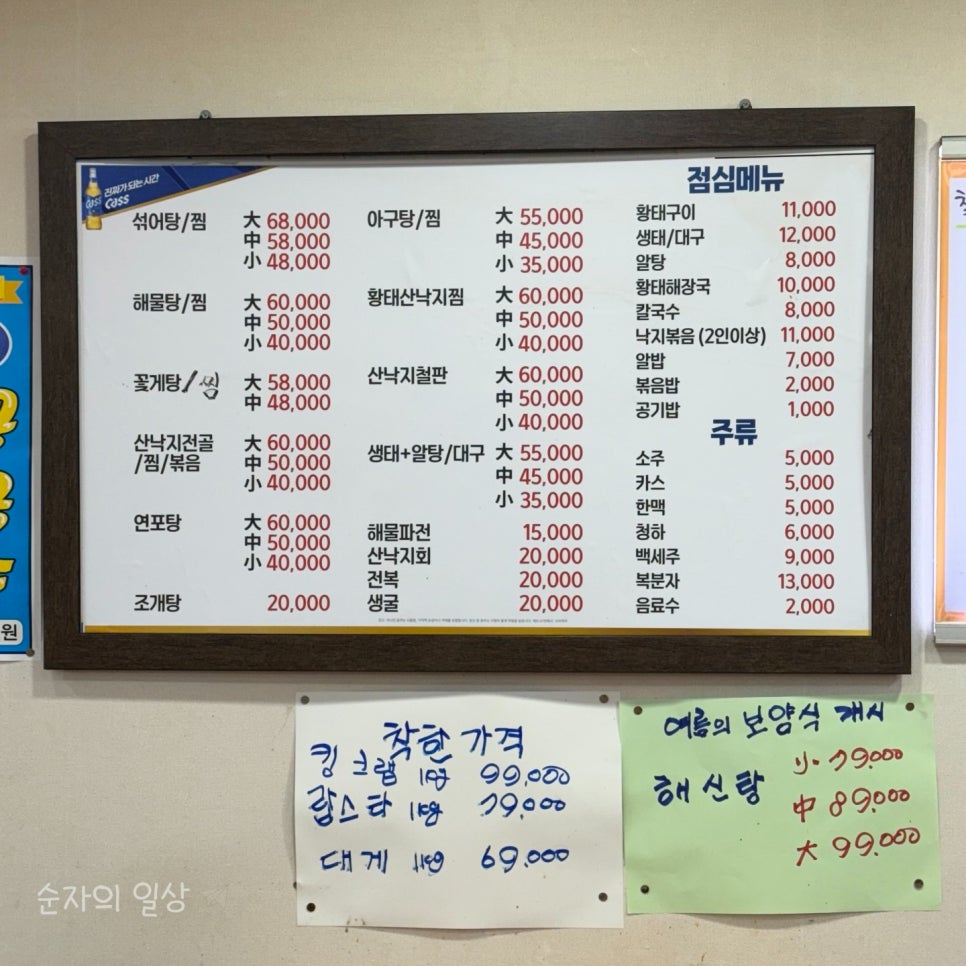 진짜가 되는 시간
Cass
섞어탕/찜 大 68,000
中 58,000
小 48,000
해물탕/찜 大 60,000
中 50,000
小 40,000
꽃게탕/찜 大 58,000
中 48,000
산낙지전골 大 60,000
/찜/볶음 中 50,000
小 40,000
연포탕 大 60,000
中 50,000
小 40,000
조개탕 20,000
아구탕/찜 大 55,000
中 45,000
小 35,000
황태산낙지찜 大 60,000
中 50,000
小 40,000
산낙지철판 大 60,000
中 50,000
小 40,000
생태+알탕/대구 大 55,000
中 45,000
小 35,000
해물파전 15,000
산낙지회 20,000
전복 20,000
생굴 20,000
점심메뉴
황태구이 11,000
생태/대구 12,000
알탕 8,000
황태해장국 10,000
칼국수 8,000
낙지볶음 (2인이상) 11,000
알밥 7,000
볶음밥 2,000
공기밥 1,000
주류
소주 5,000
카스 5,000
한맥 5,000
청하 6,000
백세주 9,000
복분자 13,000
음료수 2,000
원
착한 가격
킹크랩 1kg 99,000
랍스타 1kg 79,000
대게 1kg 69,000
여름의 보양식 개시
해신탕 小 79,000
中 89,000
大 99,000
순자의 일상